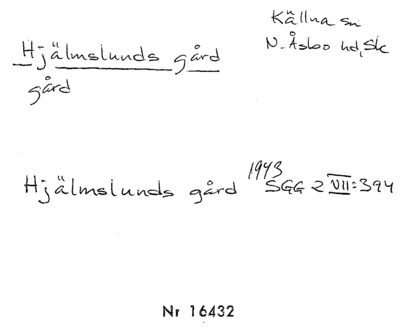 Hjälmslunds gård
gård
Källna sn
N. Åsbo hd, Sk
Hjälmslunds gård 1943 SGG 2 VII:394
Nr 16432